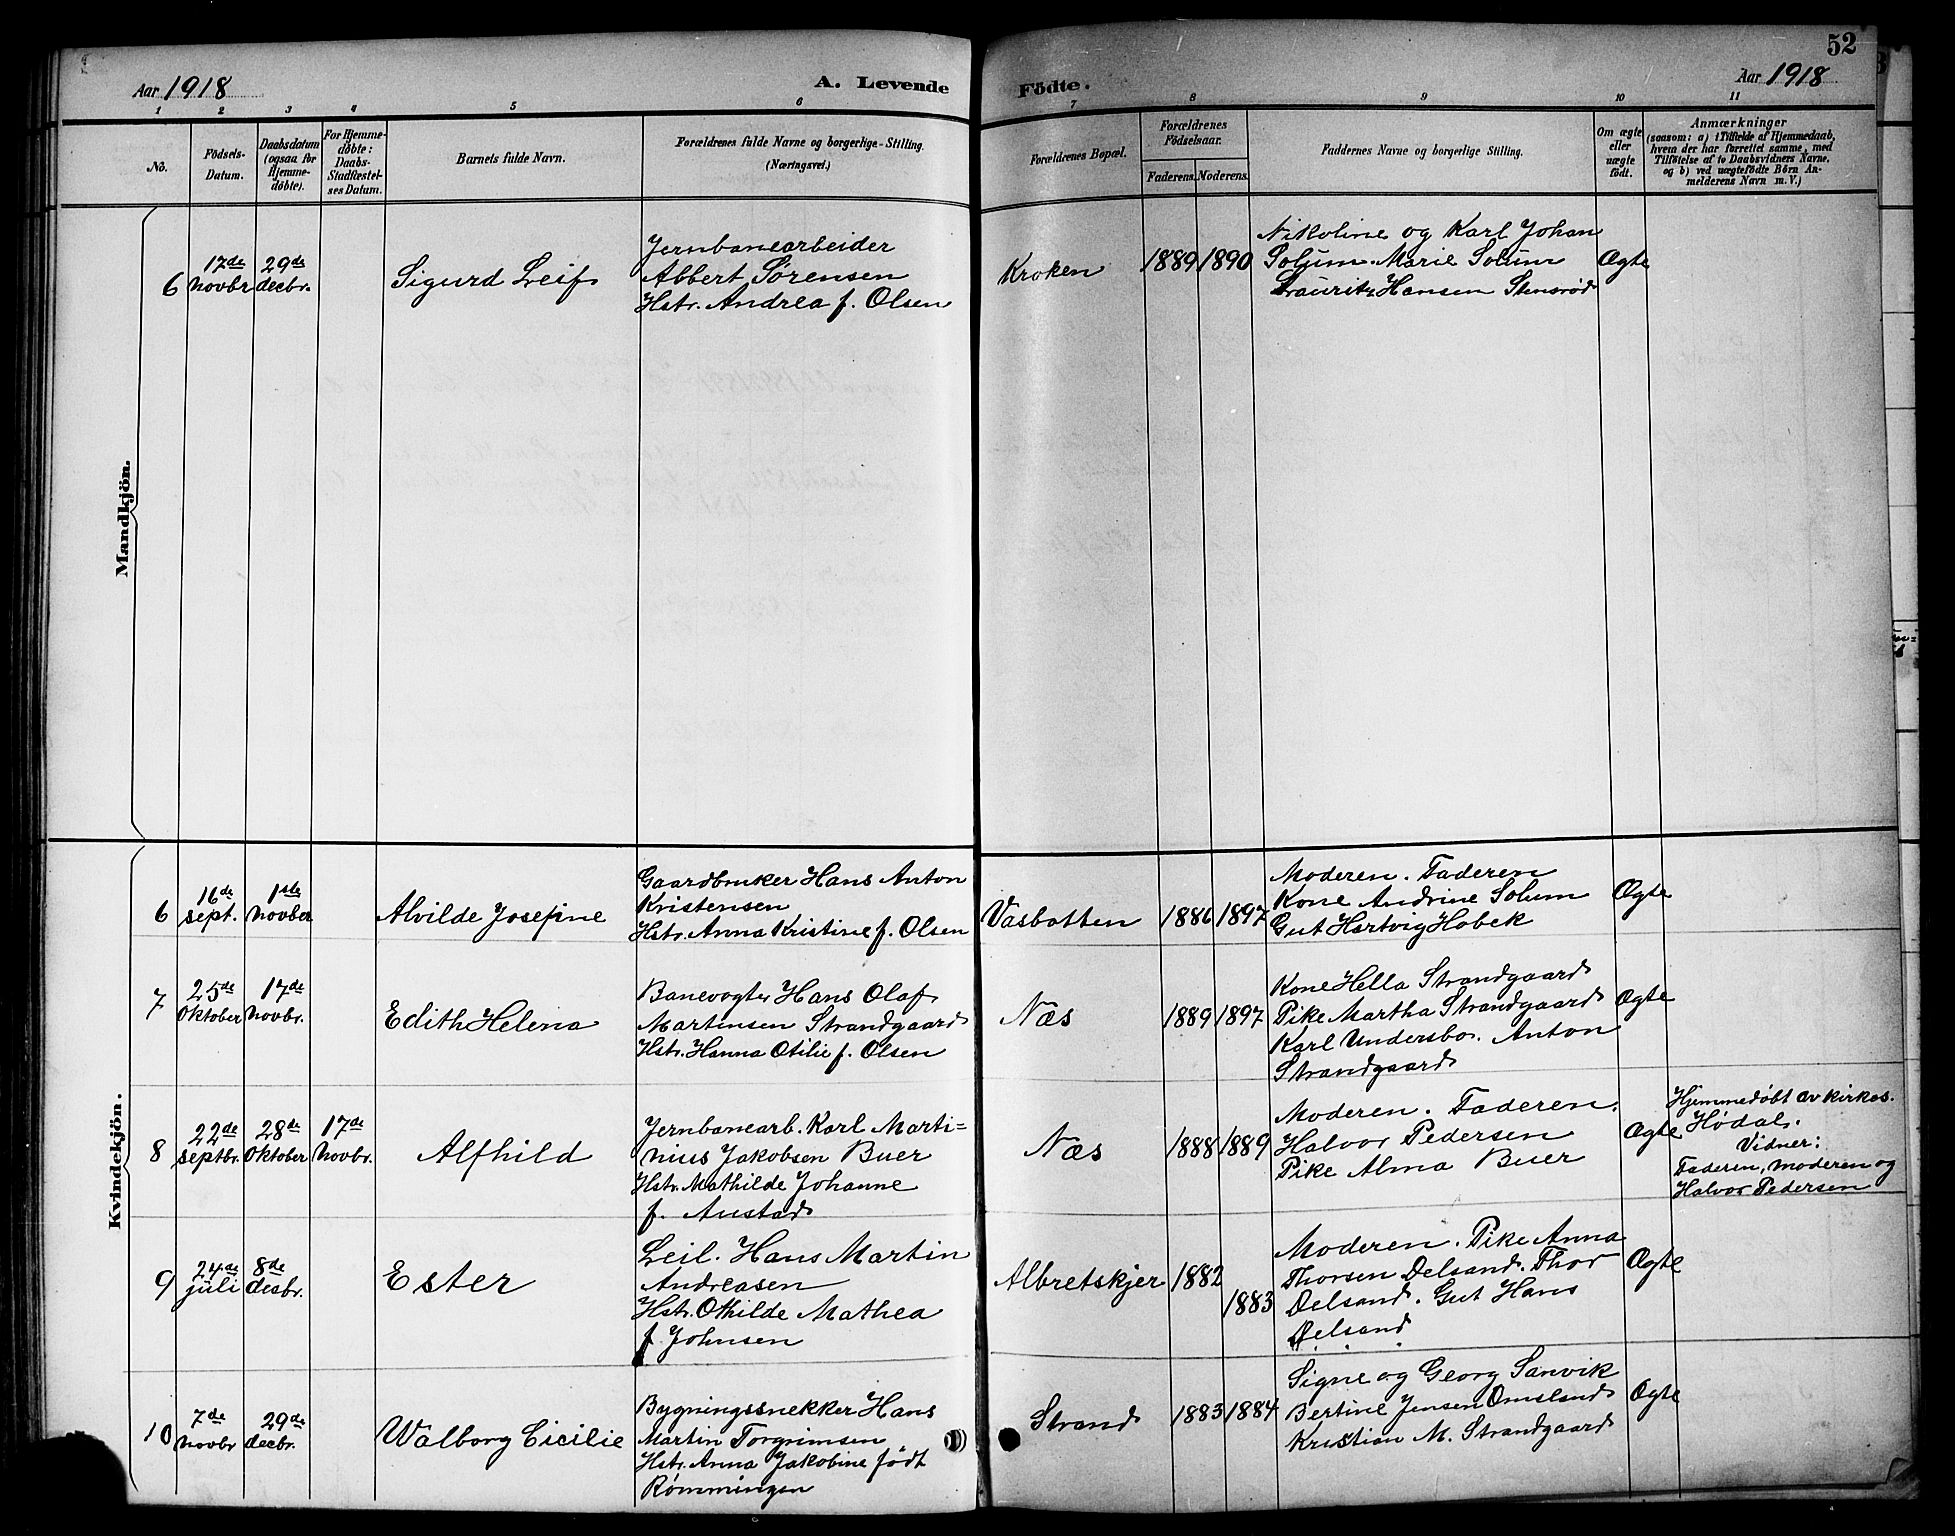 52
Aar 1918
A. Levende
Födte.
Aar 1918
1 2 3 4 5 6 7 8 9 10 11
No.
Födsels-
Datum.
Daabsdatum
(ogsaa for
Hjemme-
døbte).
For Hjemme-
døbte:
Daabs-
Stadfæstel-
ses Datum.
Barnets fulde Navn.
Forældrenes fulde Navne og borgerlige Stilling.
(Næringsvei.)
Forældrenes Bopæl.
Forældrenes
Födselsaar.
Faderens. Moderens.
Faddernes Navne og borgerlige Stilling.
Om ægte
eller
uægte
födt.
Anmærkninger
(saasom: a) i Tilfælde af Hjemmedaab,
hvem der har forrettet samme, med
Tilføielse af to Daabsvidners Navne,
og b) ved uægtefødte Børn An-
melderens Navn m. V.)
Mandkjön.
6
17de
Novbr
29de
decbr.
Sigurd Leif
Jernbanearbeider
Albert Sørensen
Hstr. Andrea f. Olsen
Kroken
1889 1890
Nikoline og Karl Johan
Solum. Marie Solum
Lauritz Hansen Stensrød
Ægte
Kvindekjön.
6
16de
sept.
1ste
Novber
Alvilde Josefine
Gaardbruker Hans Anton
Kristensen
Hstr. Anna Kristine f. Olsen
Vasbotten
1886 1897
Moderen. Faderen
Kone Andrine Solum
Gut Hartvig Hobek
Ægte
7
25de
Oktober
17de
Novbr.
Edith Helena
Banevogter Hans Olaf
Martinsen Strandgaard
Hstr. Hanna Otilie f. Olsen
Næs
1889 1897
Kone Hella Strandgaard
Pike Martha Strandgaard
Karl Undersbo. Anton
Strandgaard
Ægte
8
22de
septbr.
28de
Oktober
17de
Novbr.
Alfhild
Jernbanearb. Karl Marti=
nius Jakobsen Buer
Hstr. Mathilde Johanne
f. Austad
Næs
1888 1889
Moderen. Faderen.
Halvor Pedersen
Pike Alma Buer
Ægte
Hjemmedøbt av kirkes.
Hødal.
Vidner:
Faderen, moderen og
Halvor Pedersen
9
24de
juli
8de
desbr.
Ester
Leil. Hans Martin
Andreasen
Hstr. Othilde Mathea
f. Johnsen
Albretskjer
1882
1883
Moderen. Pike Anna
Thorsen Delsand. Thor
Delsand. Gut Hans
Delsand
Ægte
10
7de
Novbr
29de
decbr.
Walborg Cicilie
Bygningssnekker Hans
Martin Torgrimsen
Hstr. Anna Jakobine født
Rømmingen
Strand
1883 1884
Signe og Georg Sanvik
Bertine Jensen Omsland
Kristian M. Strandgaard
Ægte